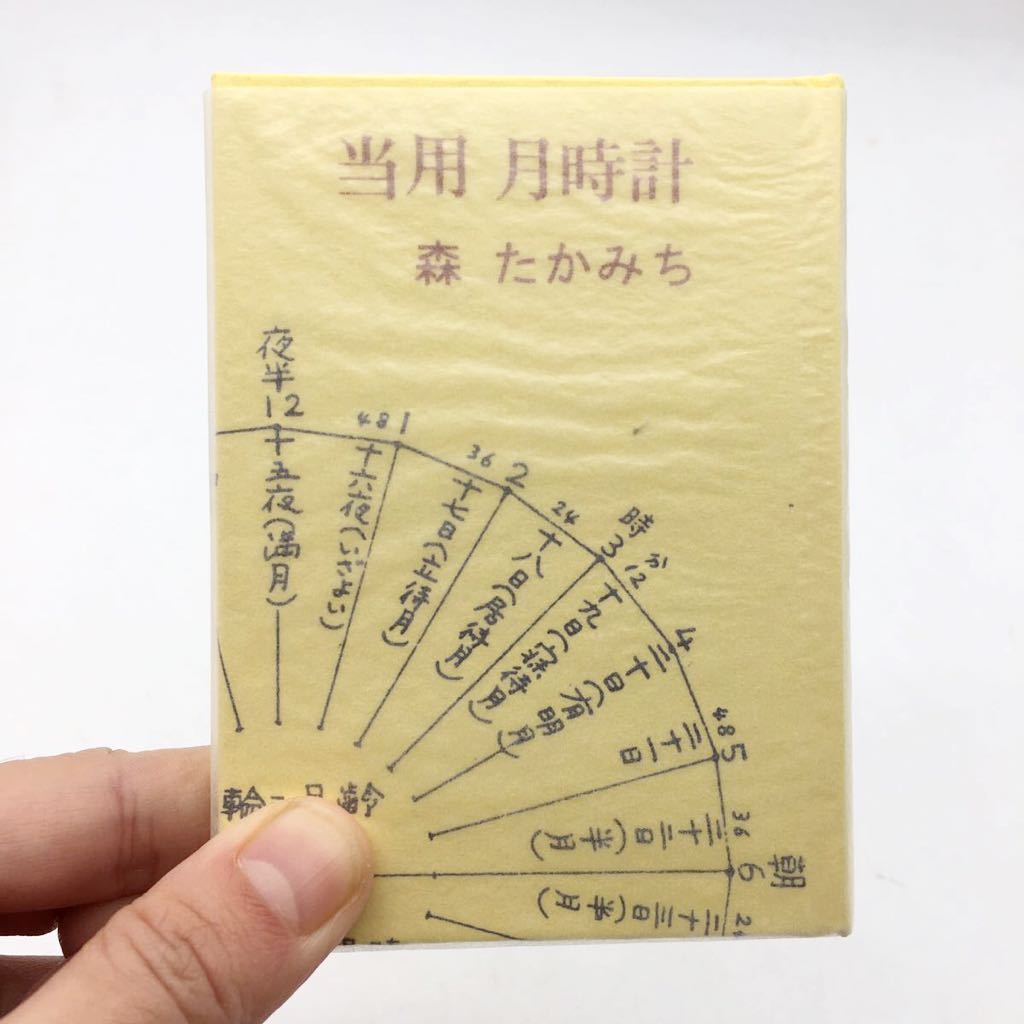 当用 月時計
森 たかみち
夜半
12
十五夜(満月)
48
1
十六夜(いざよい)
36
2
十七日(立待月)
24
時
3
十八日(居待月)
分
12
十九日(寝待月)
4
二十日(有明月)
48
5
二十一日
36
二十二日(半月)
朝
6
24
二十三日(半月)